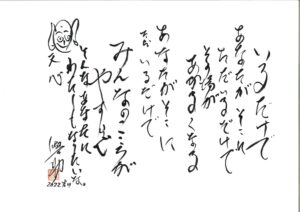 いるだけで
あなたがそこに
ただいるだけで
その場が
あかるくなる
あなたがそこに
ただ いるだけで
みんなのこころが
やすらぐ
そんなあなたに
わたしもなりたい